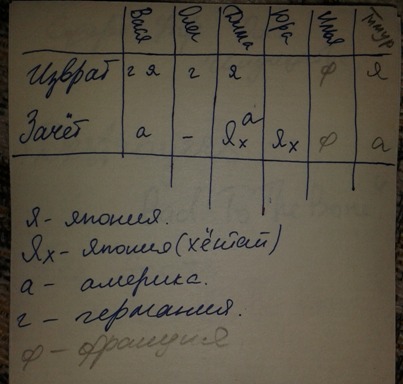 Вася Олег Дима Юра Илья Тимур
Изврат г я г я ф я
Зачёт а – Ях а Ях ф а
я – япония.
Ях – япония (хентай)
а – америка.
г – германия.
ф – франция